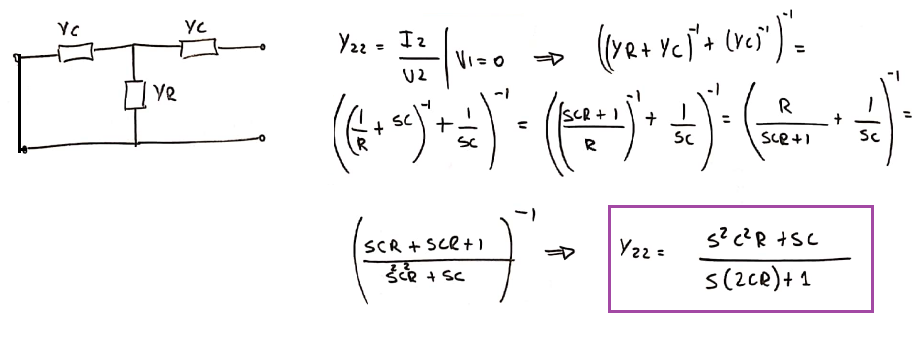 YC YC
YR
Y22 = I2 / U2 | V1=0 ⇒ ((YR + YC)^-1 + (YC)^-1)^-1 =
((1/R + SC)^-1 + 1/SC)^-1 = ((SCR + 1 / R)^-1 + 1/SC)^-1 = (R / SCR+1 + 1/SC)^-1 =
(SCR + SCR+1 / S²C²R + SC)^-1 ⇒ Y22 = S²C²R + SC / S(2CR)+1